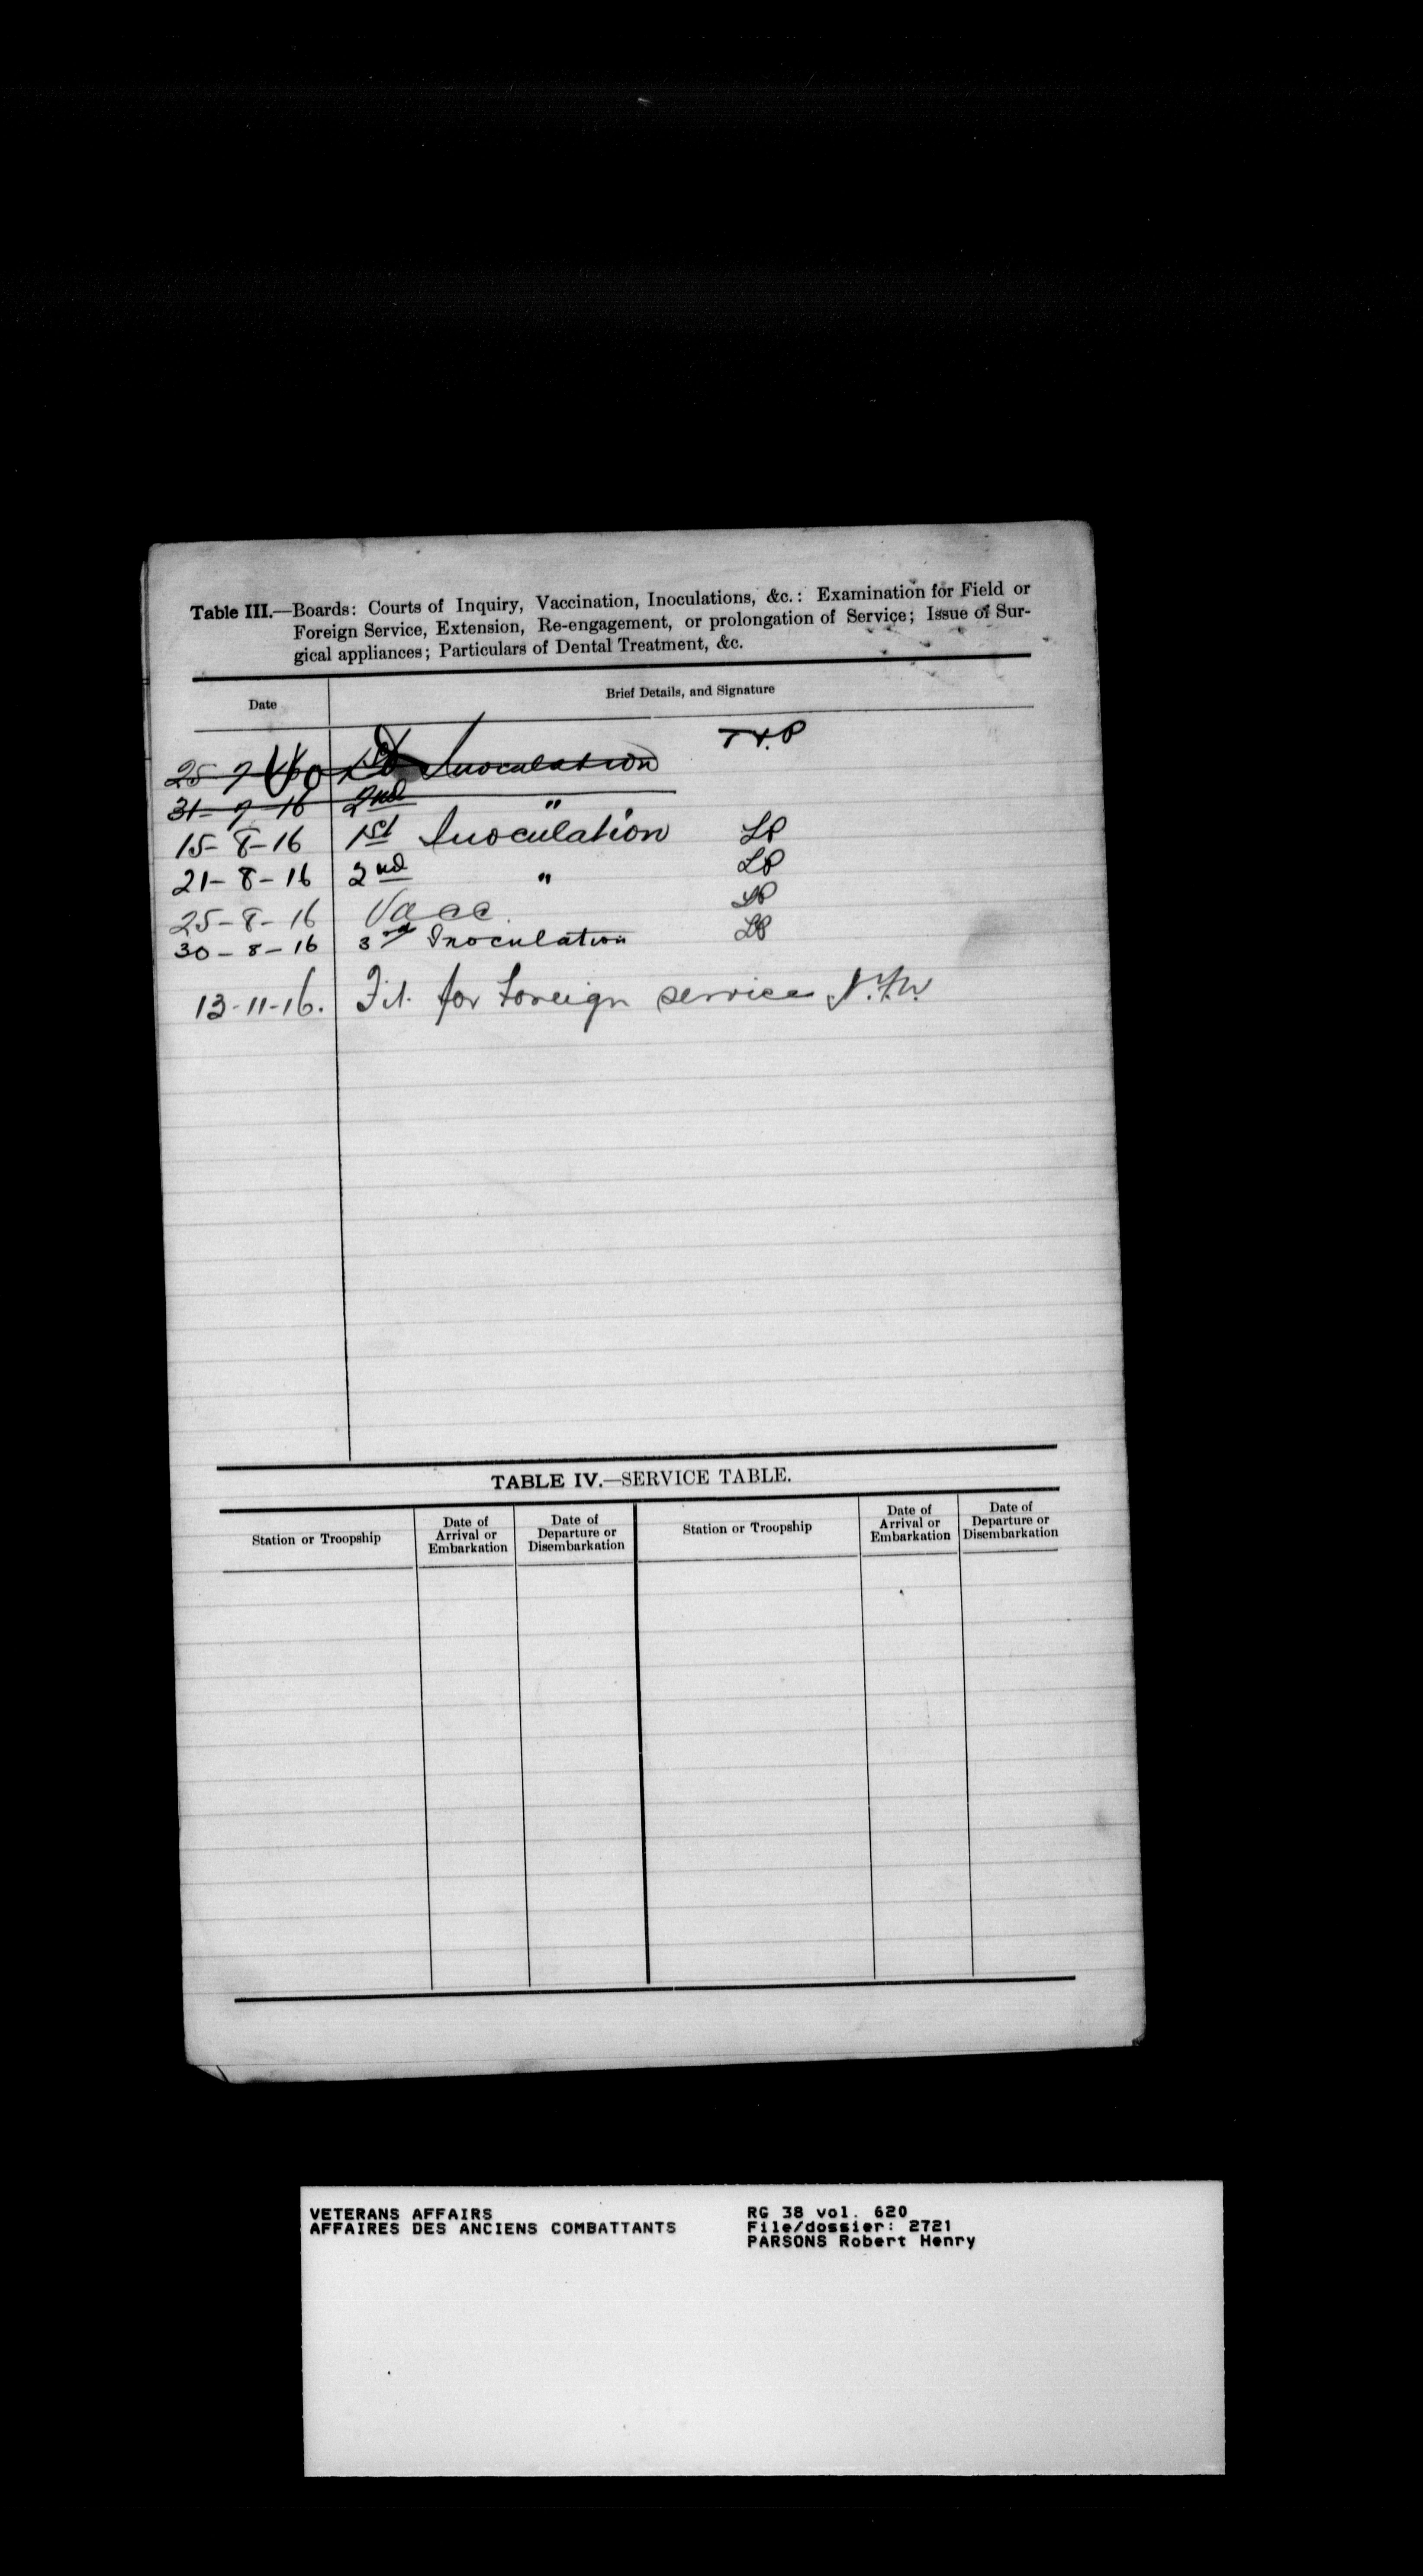 Table III.—Boards: Courts of Inquiry, Vaccination, Inoculations, &c.: Examination for Field or
Foreign Service, Extension, Re-engagement, or prolongation of Service; Issue of Sur-
gical appliances; Particulars of Dental Treatment, &c.
Date Brief Details, and Signature
25-7-16 1st Inoculation
31-7-16 2nd "
15-8-16 1st Inoculation LP
21-8-16 2nd " LP
25-8-16 Vacc. LP
30-8-16 3rd Inoculation LP
13-11-16. Fit for Foreign service
TABLE IV.—SERVICE TABLE.
Station or Troopship Date of Arrival or Embarkation Date of Departure or Disembarkation Station or Troopship Date of Arrival or Embarkation Date of Departure or Disembarkation
VETERANS AFFAIRS RG 38 vol. 620
AFFAIRES DES ANCIENS COMBATTANTS File/dossier: 2721
PARSONS Robert Henry